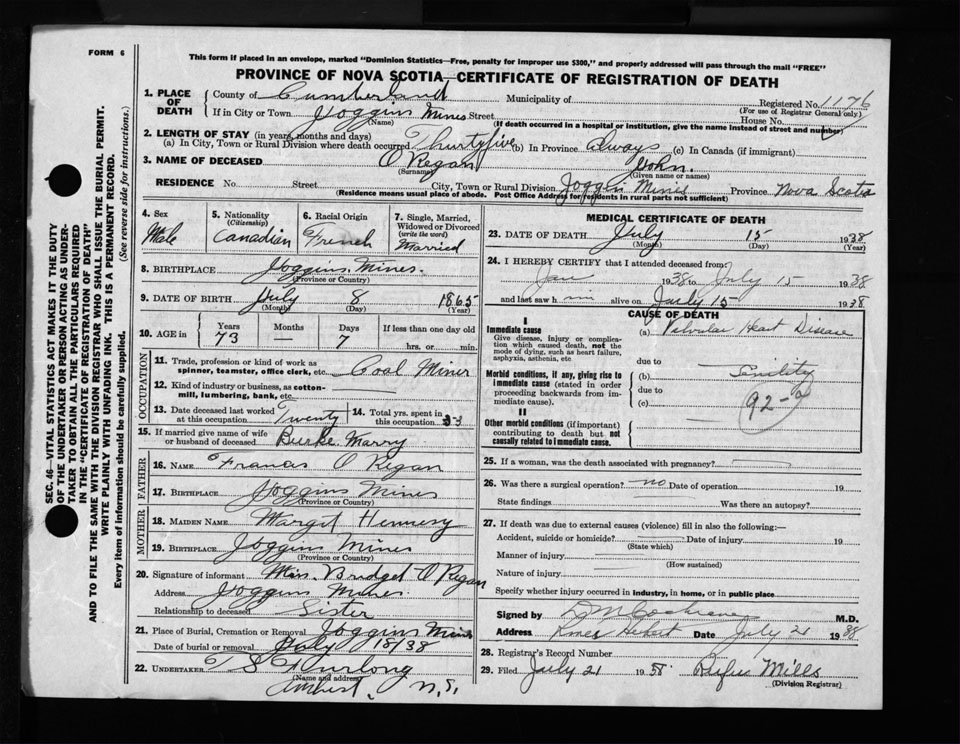 FORM 6
This form if placed in an envelope, marked "Dominion Statistics—Free, penalty for improper use $300," and properly addressed will pass through the mail "FREE"
PROVINCE OF NOVA SCOTIA—CERTIFICATE OF REGISTRATION OF DEATH
SEC. 46—VITAL STATISTICS ACT MAKES IT THE DUTY
OF THE UNDERTAKER OR PERSON ACTING AS UNDER-
TAKER TO OBTAIN ALL THE PARTICULARS REQUIRED
IN THE "CERTIFICATE OF REGISTRATION OF DEATH"
AND TO FILE THE SAME WITH THE DIVISION REGISTRAR WHO SHALL ISSUE THE BURIAL PERMIT.
WRITE PLAINLY WITH UNFADING INK. THIS IS A PERMANENT RECORD.
Every item of information should be carefully supplied. (See reverse side for instructions.)
1. PLACE OF DEATH County of Cumberland Municipality of Registered No. 1176
(For use of Registrar General only)
If in City or Town Joggins Mines Street House No.
(Name) (If death occurred in a hospital or institution, give the name instead of street and number)
2. LENGTH OF STAY (in years, months and days)
(a) In City, Town or Rural Division where death occurred Thurtyfive (b) In Province always (c) In Canada (if immigrant)
3. NAME OF DECEASED O Regan John.
(Surname) (Given name or names)
RESIDENCE No. Street City, Town or Rural Division Joggin Mines Province Nova Scota
(Residence means usual place of abode. Post Office Address for residents in rural parts not sufficient)
4. Sex 5. Nationality 6. Racial Origin 7. Single, Married, Widowed or Divorced
(Citizenship) (write the word)
Male Canadian French Married
8. BIRTHPLACE Joggins Mines.
(Province or Country)
9. DATE OF BIRTH July 8 1865
(Month) (Day) (Year)
10. AGE in Years Months Days If less than one day old
73 — 7 hrs. or min.
OCCUPATION
11. Trade, profession or kind of work as
spinner, teamster, office clerk, etc. Coal Miner
12. Kind of industry or business, as cotton-
mill, lumbering, bank, etc.
13. Date deceased last worked at this occupation Twenty 14. Total yrs. spent in this occupation 33
15. If married give name of wife
or husband of deceased Burke Marry
FATHER
16. NAME Francis O Regan
17. BIRTHPLACE Joggins Mines
(Province or Country)
MOTHER
18. MAIDEN NAME Margit Hennesy
19. BIRTHPLACE Joggins Mines
(Province or Country)
20. Signature of informant Miss. Bridget O Regan
Address Joggins Mines.
Relationship to deceased Sister
21. Place of Burial, Cremation or Removal Joggins Mines
Date of burial or removal July 18/38
22. UNDERTAKER Furlong
(Name and address)
Amherst, N.S.
MEDICAL CERTIFICATE OF DEATH
23. DATE OF DEATH July 15 1938
(Month) (Day) (Year)
24. I HEREBY CERTIFY that I attended deceased from
Jan 1938 to July 15 1938
and last saw him alive on July 15 1938
CAUSE OF DEATH
I
Immediate cause (a) Valvular Heart Disease
Give disease, injury or compli-
cation which caused death, not the
mode of dying, such as heart failure,
asphyxia, asthenia, etc due to
Morbid conditions, if any, giving rise to
immediate cause (stated in order
proceeding backwards from im-
mediate cause). (b) Senility
due to
(c) 92-
II
Other morbid conditions (if important)
contributing to death but not
causally related to immediate cause.
25. If a woman, was the death associated with pregnancy?
26. Was there a surgical operation? no Date of operation 19
State findings Was there an autopsy?
27. If death was due to external causes (violence) fill in also the following:—
Accident, suicide or homicide? Date of injury 19
(State which)
Manner of injury
(How sustained)
Nature of injury
Specify whether injury occurred in industry, in home, or in public place
Signed by D M Cochrane M.D.
Address River Hebert Date July 21 1938
28. Registrar's Record Number
29. Filed July 21 1938 Rufus Mills
(Division Registrar)